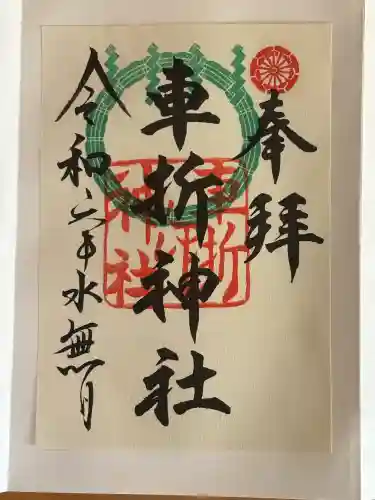 奉拝
車折神社
車折神社
令和六年水無月